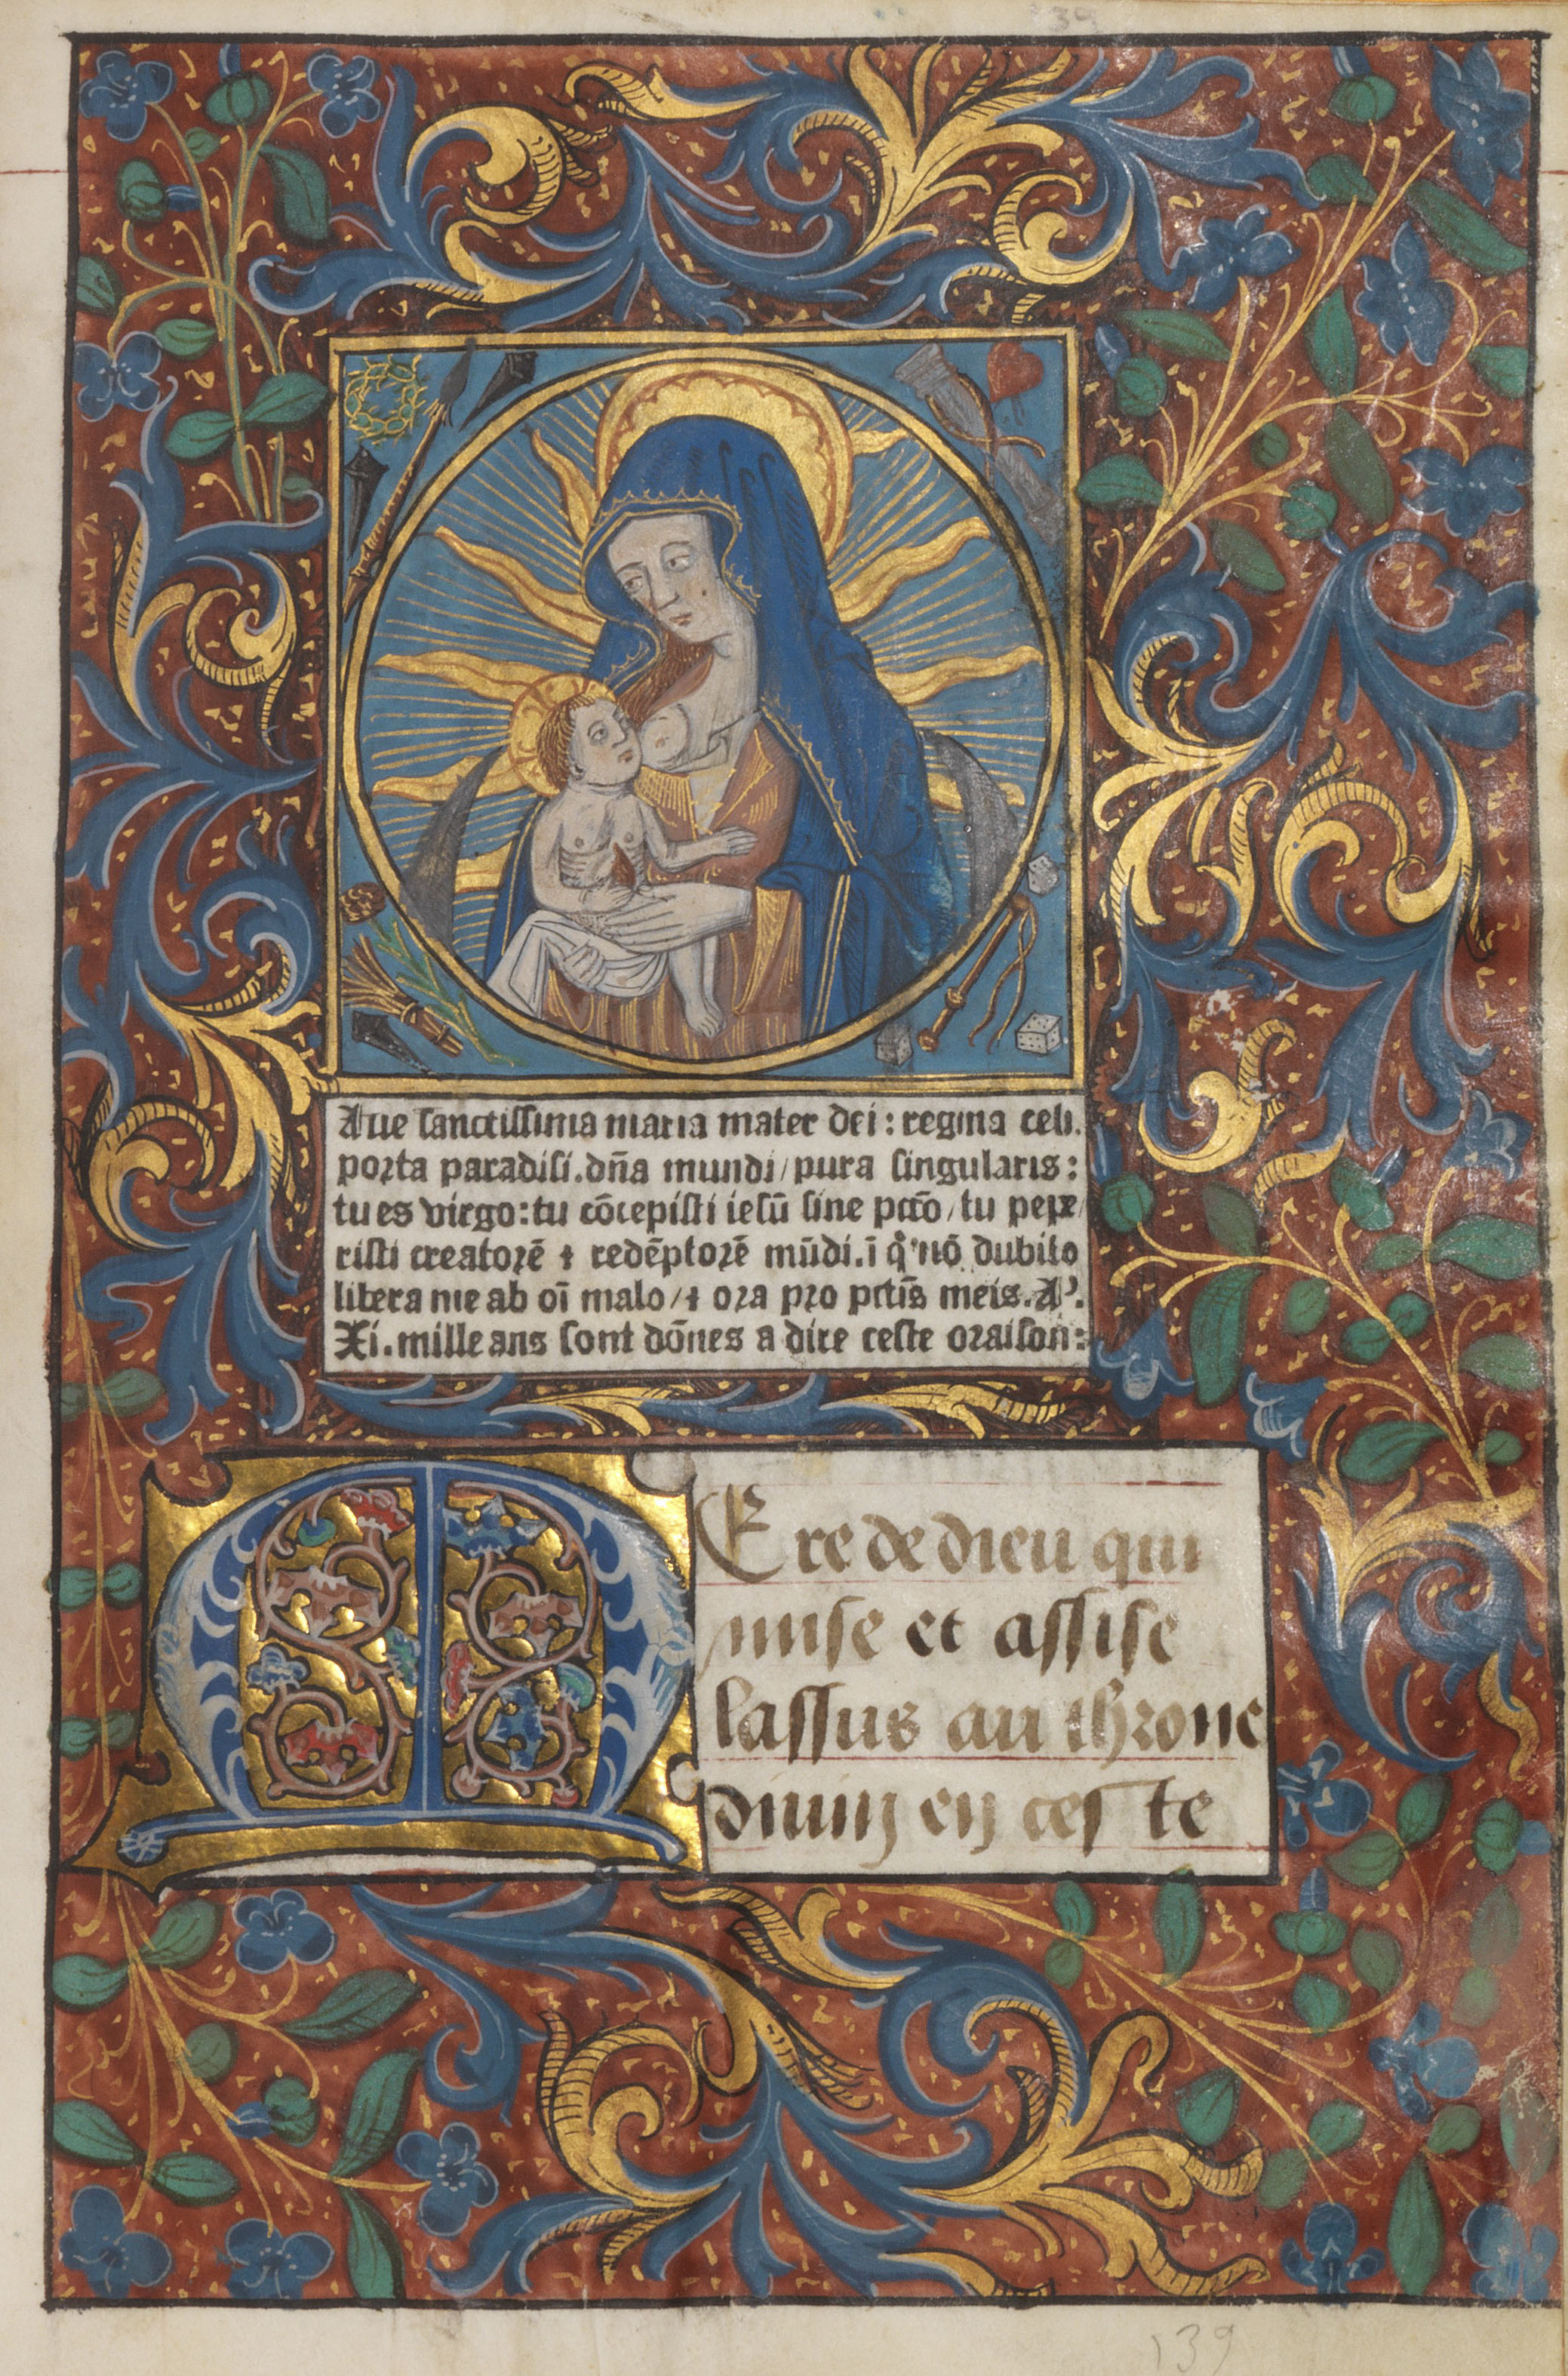 Aue sanctissima maria mater dei : regina celi.
porta paradisi. dña mundi / pura singularis :
tu es virgo : tu cōcepisti iesū sine pctō / tu pepe /
risti creatorē ⁊ redēptorē mūdi. ī q° nō dubito
libera me ab oī malo / ⁊ ora pro pctīs meis. A.
Xi. mille ans sont dōnes a dire ceste oraison :
M Ere de dieu qui
mise et assise
lassus au throne
diuin en ces te
139